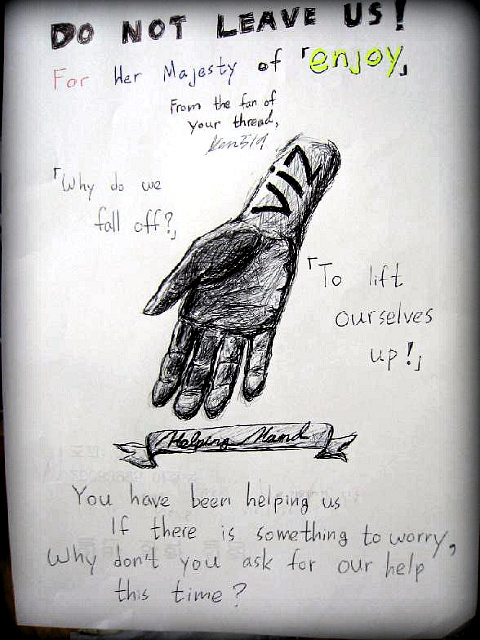 DO NOT LEAVE US!
For Her Majesty of 「enjoy」
From the fan of
your thread,
「Why do we
fall off?」
VIZ
「To lift
ourselves
up!」
Helping Hand
You have been helping us
If there is something to worry,
Why don't you ask for our help
this time?